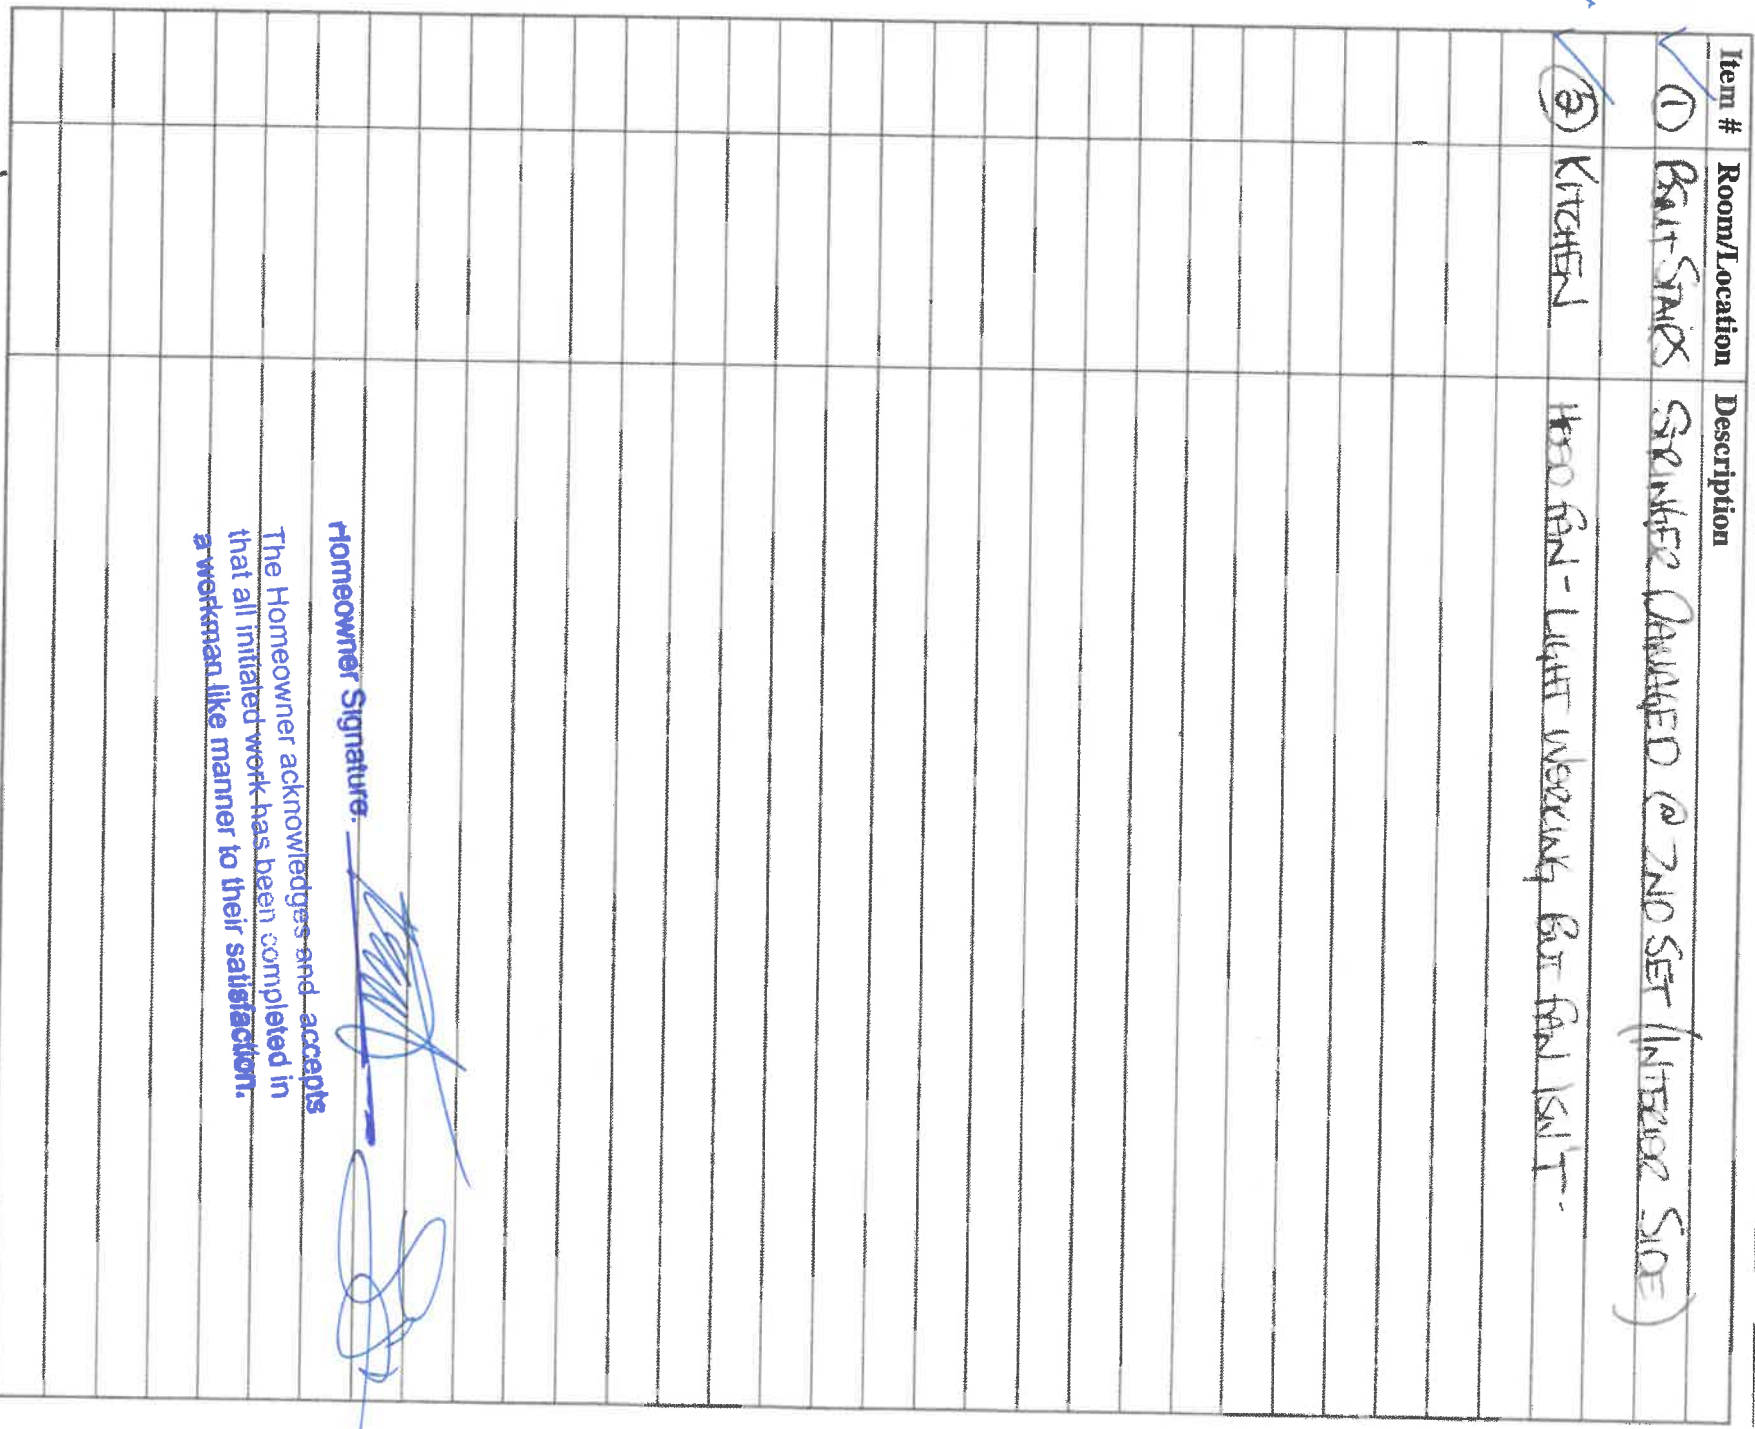 Item # Room/Location Description
① BSMT STAIRS STRINGER DAMAGED @ 2ND SET (INTERIOR SIDE)
② KITCHEN HOOD FAN - LIGHT WORKING BUT FAN ISN'T.
Homeowner Signature:
The Homeowner acknowledges and accepts
that all initialed work has been completed in
a workman like manner to their satisfaction.